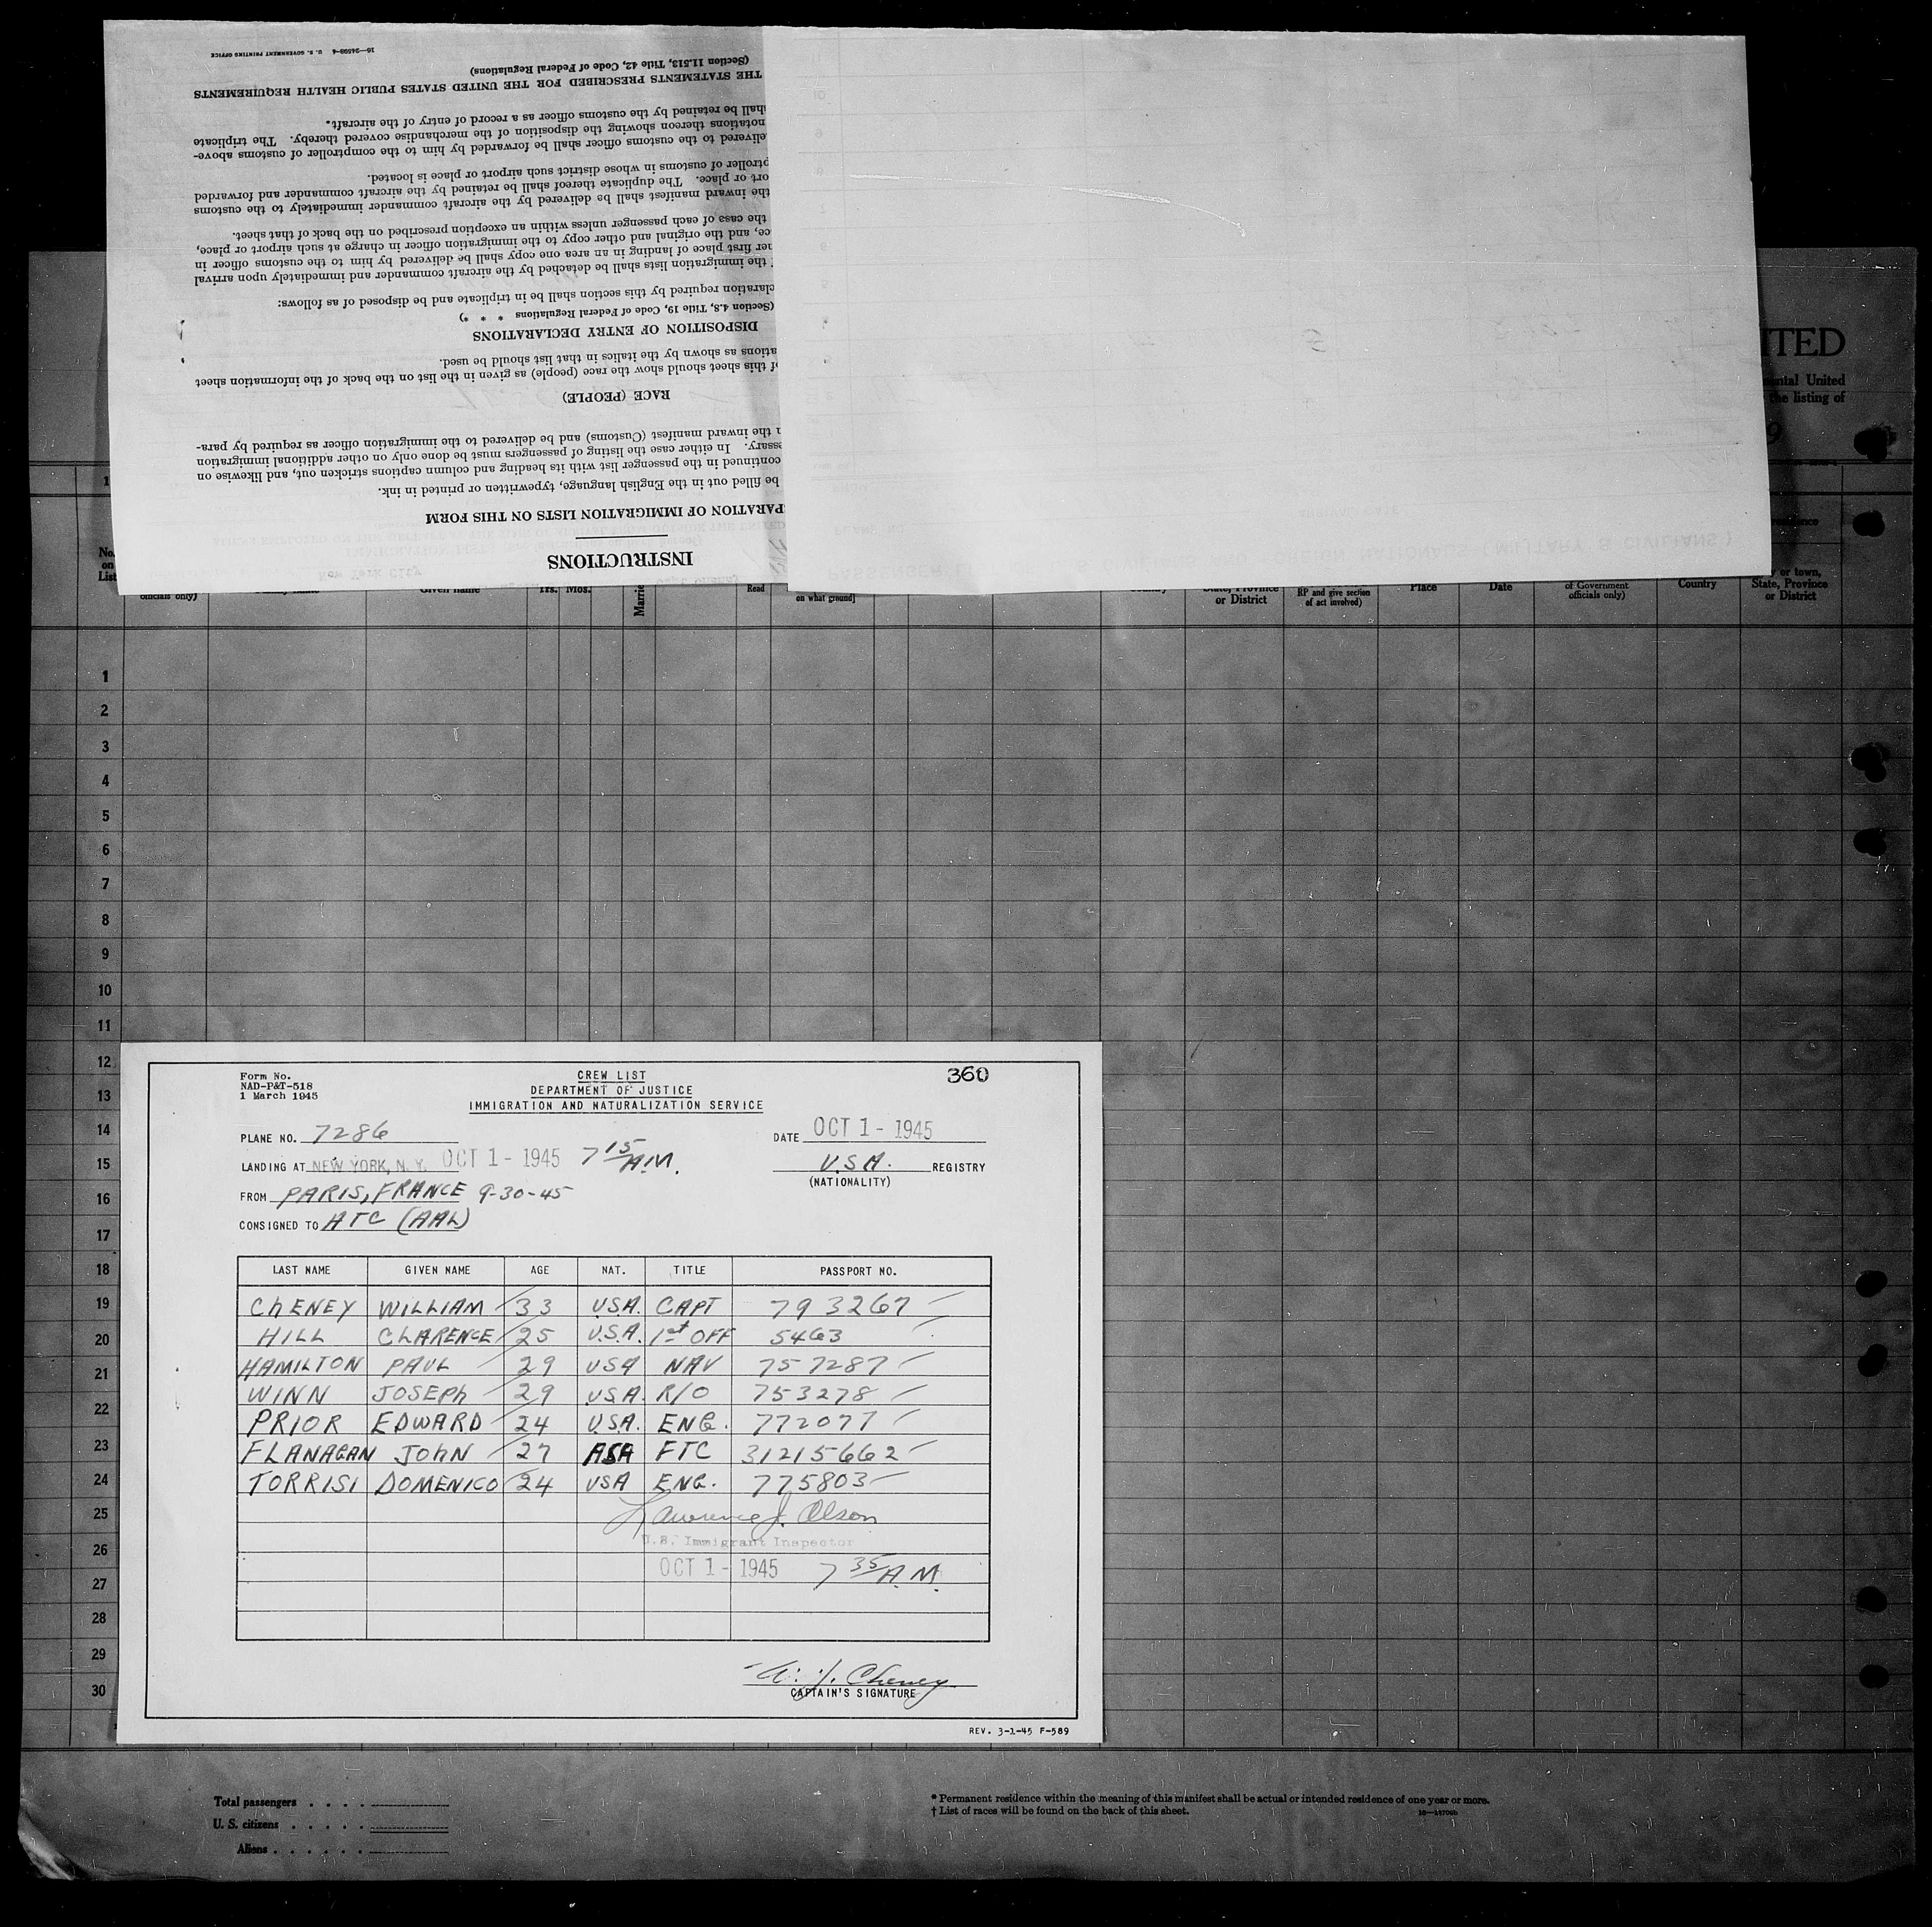 16—24598-4 U. S. GOVERNMENT PRINTING OFFICE
(Section 11.513, Title 42, Code of Federal Regulations)
THE STATEMENTS PRESCRIBED FOR THE UNITED STATES PUBLIC HEALTH REQUIREMENTS
shall be retained by the customs officer as a record of entry of the aircraft.
notations thereon showing the disposition of the merchandise covered thereby. The triplicate
elivered to the customs officer shall be forwarded by him to the comptroller of customs above-
ptroller of customs in whose district such airport or place is located.
ort or place. The duplicate thereof shall be retained by the aircraft commander and forwarded
the inward manifest shall be delivered by the aircraft commander immediately to the customs
the case of each passenger unless within an exception prescribed on the back of that sheet.
ce, and the original and other copy to the immigration officer in charge at such airport or place,
her first place of landing in an area one copy shall be delivered by him to the customs officer in
the immigration lists shall be detached by the aircraft commander and immediately upon arrival
claration required by this section shall be in triplicate and be disposed of as follows:
(Section 4.8, Title 19, Code of Federal Regulations * * *)
DISPOSITION OF ENTRY DECLARATIONS
ations as shown by the italics in that list should be used.
of this sheet should show the race (people) as given in the list on the back of the information sheet
RACE (PEOPLE)
n the inward manifest (Customs) and be delivered to the immigration officer as required by para-
ssary. In either case the listing of passengers must be done only on other additional immigration
continued in the passenger list with its heading and column captions stricken out, and likewise on
be filled out in the English language, typewritten or printed in ink.
PARATION OF IMMIGRATION LISTS ON THIS FORM
INSTRUCTIONS
ITED
ental United
the listing of
9
1
No. on List
officials only) Given name Yrs. Mos. Marrie Read on what ground] State, Province or District RP and give section of act involved) Place Date of Government officials only) Country y or town, State, Province or District
1
2
3
4
5
6
7
8
9
10
11
12
13
14
15
16
17
18
19
20
21
22
23
24
25
26
27
28
29
30
Form No.
NAD-P&T-518
1 March 1945
CREW LIST
DEPARTMENT OF JUSTICE
IMMIGRATION AND NATURALIZATION SERVICE
360
PLANE NO. 7286 DATE OCT 1 - 1945
LANDING AT NEW YORK, N. Y. OCT 1 - 1945 7 15 A.M. U.S.A. REGISTRY
(NATIONALITY)
FROM PARIS, FRANCE 9-30-45
CONSIGNED TO ATC (AAL)
LAST NAME GIVEN NAME AGE NAT. TITLE PASSPORT NO.
CHENEY WILLIAM 33 U.S.A. CAPT 793267
HILL CLARENCE 25 U.S.A. 1st OFF 5463
HAMILTON PAUL 29 USA NAV 757287
WINN JOSEPH 29 U.S.A. R/O 753278
PRIOR EDWARD 24 U.S.A. ENG. 772077
FLANAGAN JOHN 27 ASA FTC 31215662
TORRISI DOMENICO 24 USA ENG. 775803
Lawrence J. Olson
U.S. Immigrant Inspector
OCT 1 - 1945 7 35 A.M.
W. J. Cheney
CAPTAIN'S SIGNATURE
REV. 3-1-45 F-589
Total passengers . . . .
U. S. citizens . . . . .
Aliens . . . . . .
* Permanent residence within the meaning of this manifest shall be actual or intended residence of one year or more.
† List of races will be found on the back of this sheet.